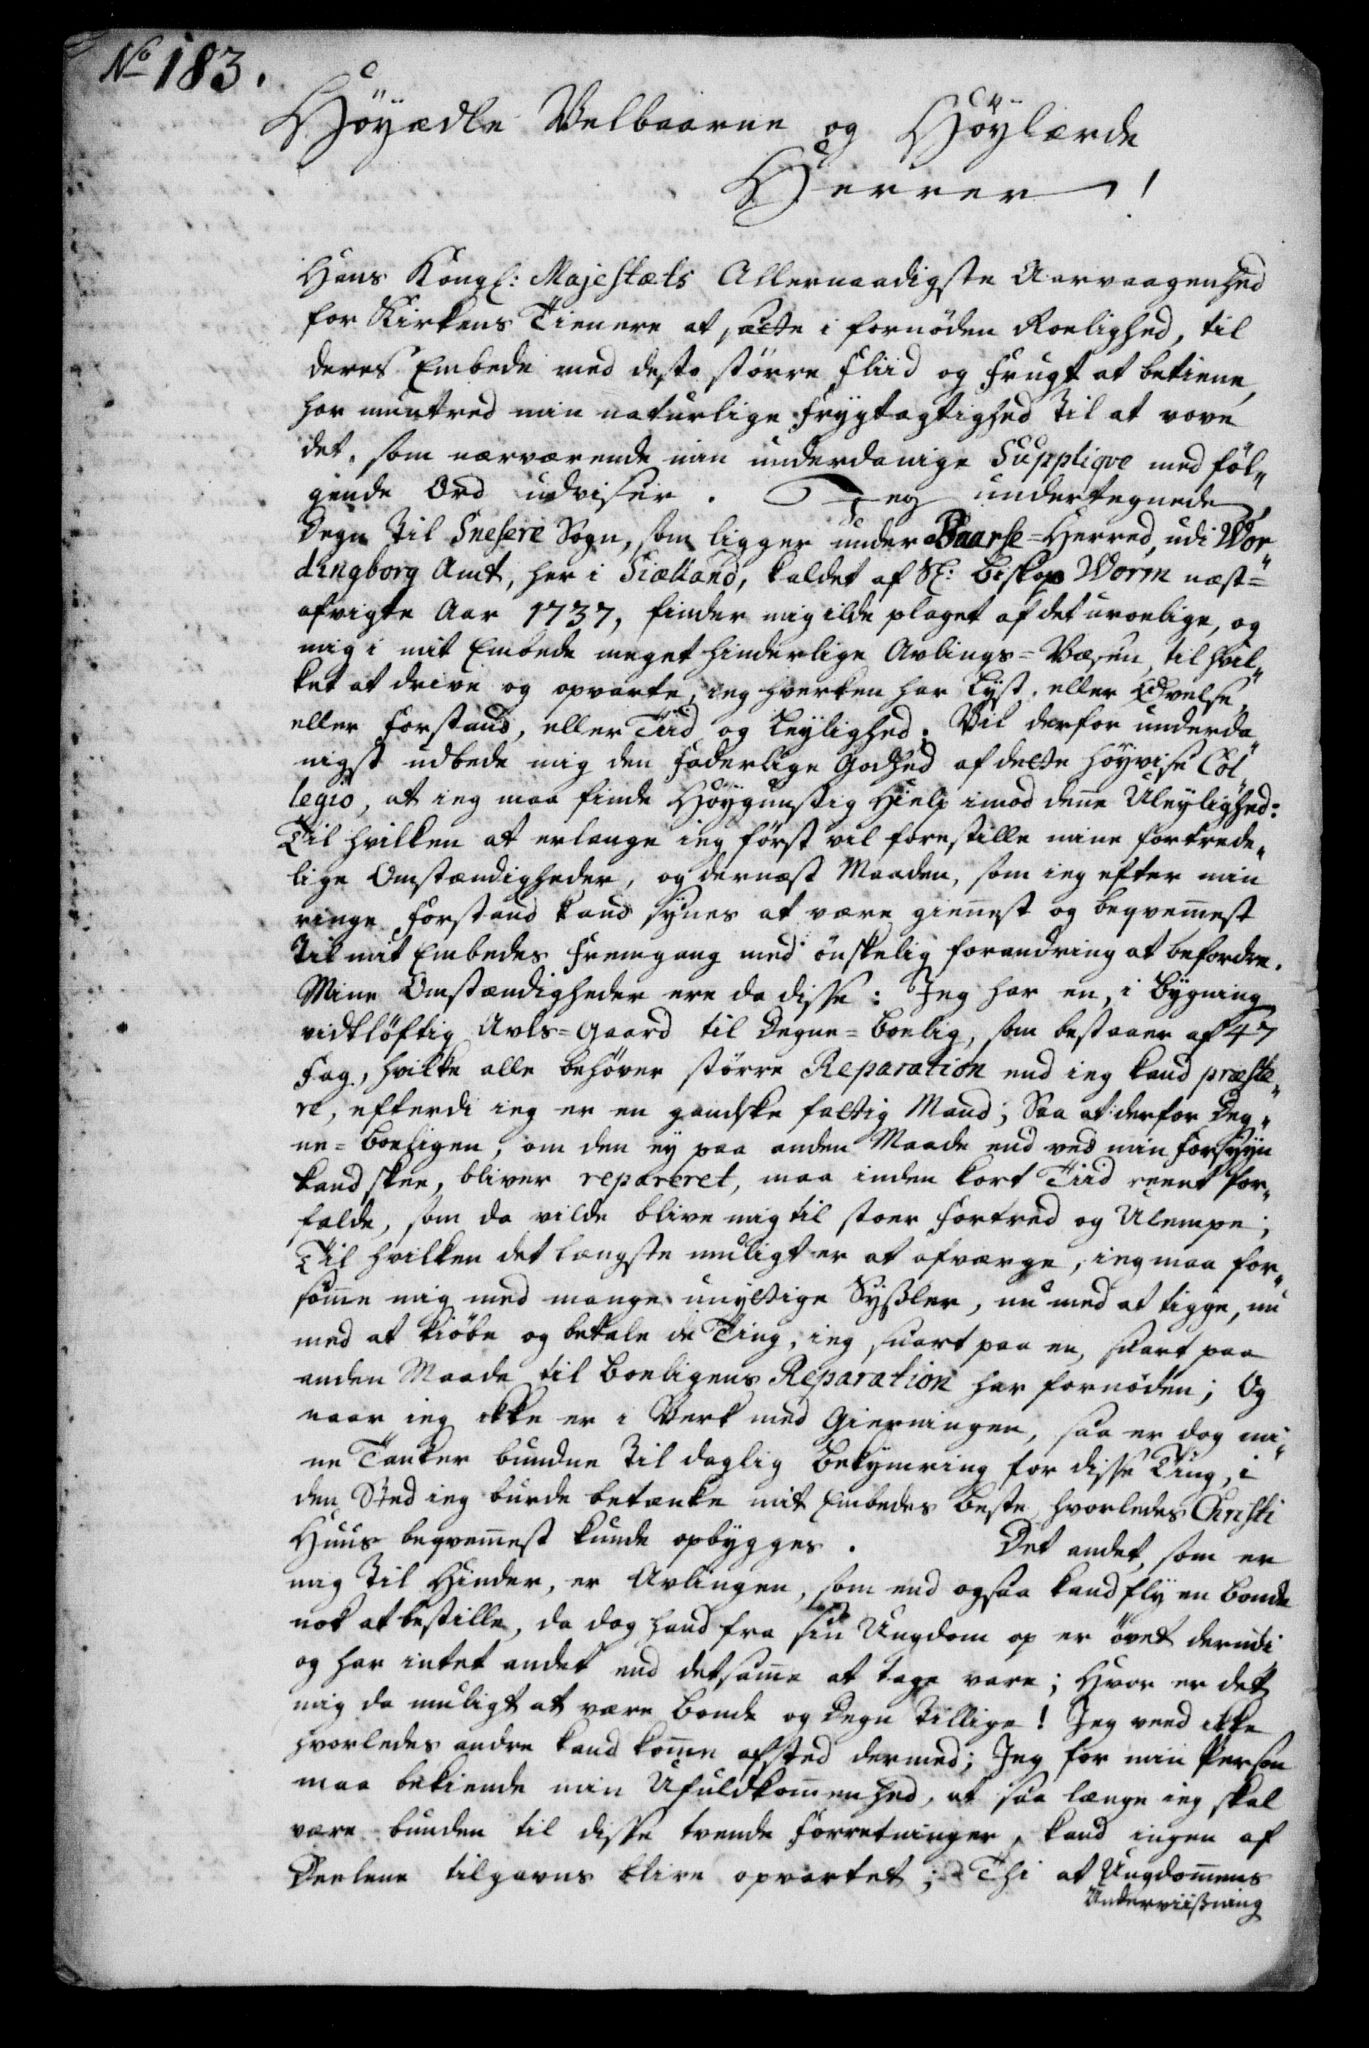 No 183.
Höyædle Velbaarne og Höylærde
Herrer!
Hans Kongl: Majestæts Allernaadigste Aarvaagenhed
for Kirkens Tienere at sætte i fornöden Roelighed, til
deres Embede med desto större Fliid og Frugt at betiene,
har muntred min naturlige Frygtagtighed til at vove
det, som nærværende min underdanige Supplique med föl„
gende Ord udviser. Jeg undertegnede,
Degn til Snesere Sogn, som ligger under Baarse=Herred, udi Wor„
dingborg Amt, her i Siælland, kaldet af Sl: Biskop Worm næst=
afvigte Aar 1737, finder mig ilde plaget af det uroelige, og
mig i mit Embede meget hinderlige Avlings=Væsen, til hvil„
ket at drive og opvarte, ieg hverken har Lyst, eller Udvelse,
eller Forstand, eller Tiid og Leylighed. Vil derfor underda„
nigst udbede mig den Faderlige Godhed af dette höyvise Col„
legio, at ieg maa finde Höygunstig Hielp imod denne Uleylighed:
Til hvilken at erlange ieg först vil forestille mine fortrede„
lige Omstændigheder, og dernæst Maaden, som ieg efter min
ringe Forstand kand synes at være giennest og beqvemmest
til mit Embedes Fremgang med önskelig forandring at befordre.
Mine Omstændigheder ere da disse: Jeg har en, i Bygning
vidtlöftig Avls=Gaard til Degne=Boelig, som bestaaer af 47
Fag, hvilke alle behöver större Reparation end ieg kand præste„
re, efterdi ieg er en gandske fattig Mand; Saa at derfor Deg„
ne=Boeligen, om den ey paa anden Maade end ved min Forsyyn
kand skee, bliver repareret, maa inden kort Tiid reent for„
falde, som da vilde blive mig til stoer Fortred og Ulempe;
Til hvilken det længste muligt er at afværge, ieg maa for„
sömme mig med mange unyttige Sysler, nu med at tigge, nu
med at kiöbe og betale de Ting, ieg snart paa en, snart paa
anden Maade til Boeligens Reparation har fornöden; Og
naar ieg ikke er i Verk med Gierningen, saa er dog mi„
ne Tanker bundne til daglig Bekymring for disse Ting, i
den Sted ieg burde betænke mit Embedes beste, hvorledes Christi
Huus beqvemmest kunde opbygges. Det andet, som er
mig til Hinder, er Avlingen, som end ogsaa kand fly en Bonde
nok at bestille, da dog hand fra sin Ungdom op er övet derudi
og har intet andet end detsamme at tage vare; Hvor er det
mig da muligt at være Bonde og Degn tillige! Jeg veed ikke
hvorledes andre kand komme afsted dermed; Jeg for min Person
maa bekiende min Ufuldkommenhed, at saa længe ieg skal
være bunden til disse tvende Forretninger, kand ingen af
Deelene tilgavns blive opvartet; Thi at Ungdommens
Underviisning